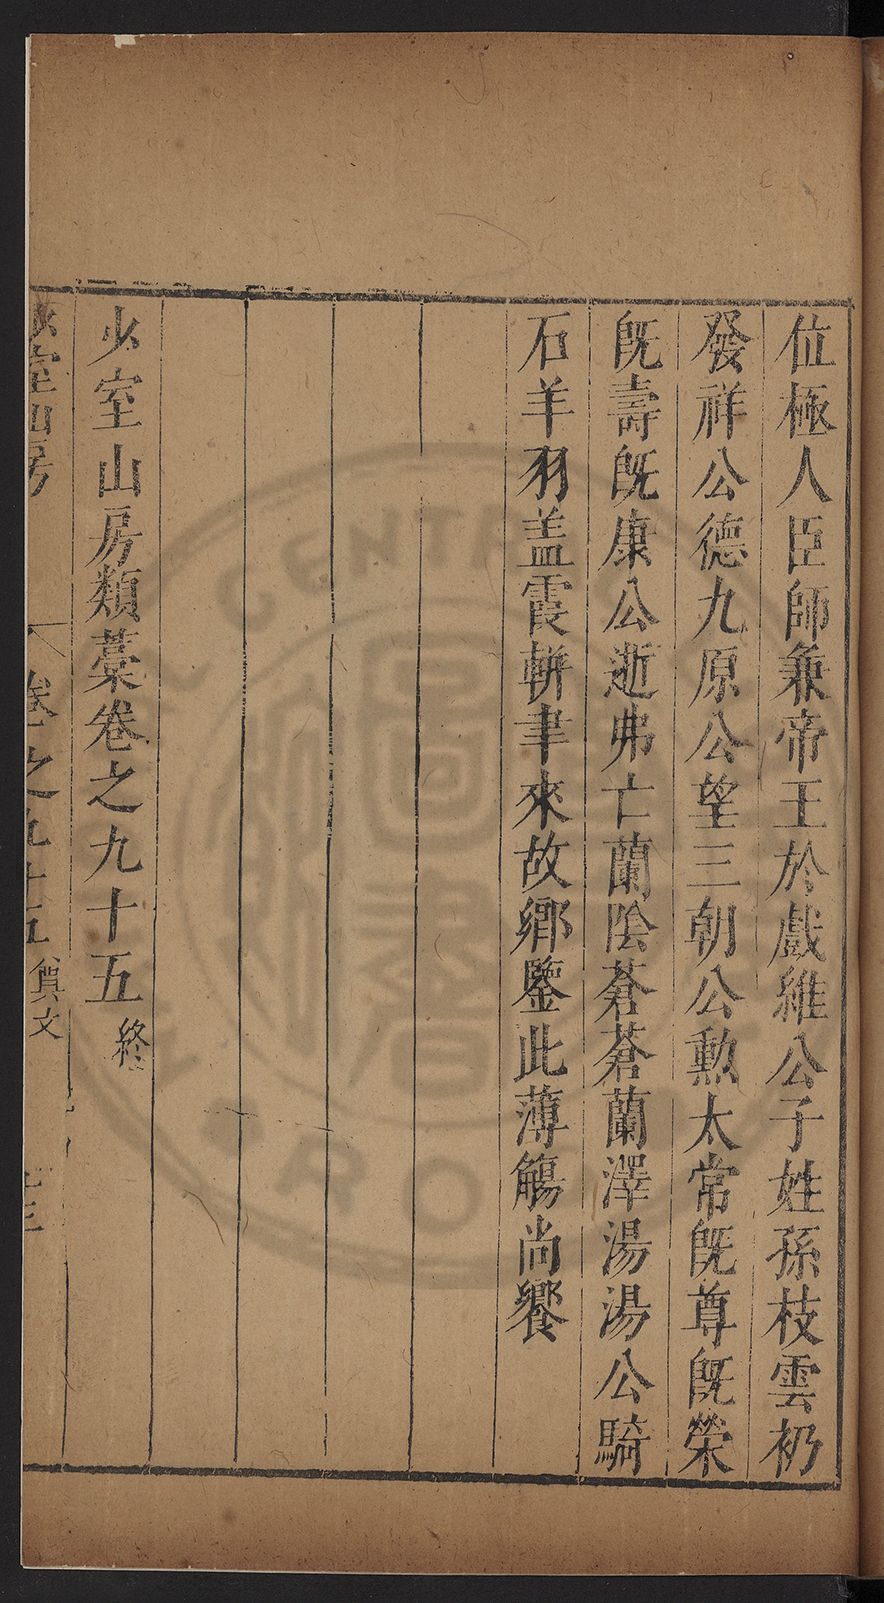 位極人臣師兼帝王於戲維公子姓孫枝雲礽
發祥公德九原公望三朝公勲太常旣尊旣榮
旣壽旣康公逝弗亡蘭陰蒼蒼蘭澤湯湯公騎
石羊羽盖霞輧聿來故鄉鑒此薄觴尚饗
少室山房類藁卷之九十五 終
室山房 卷之九十五 文